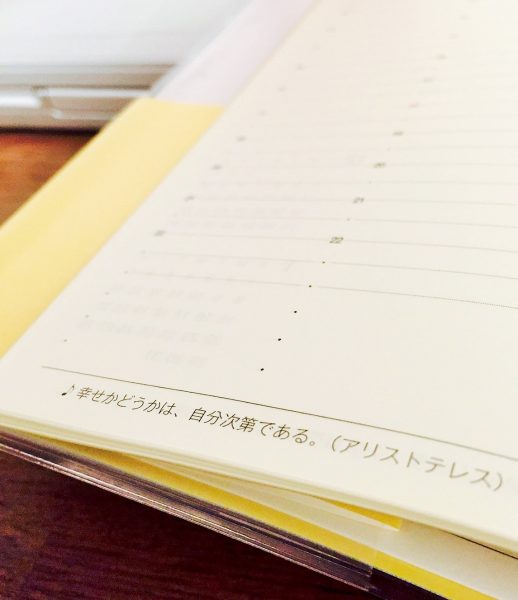 21
22
♪幸せかどうかは、自分次第である。（アリストテレス）